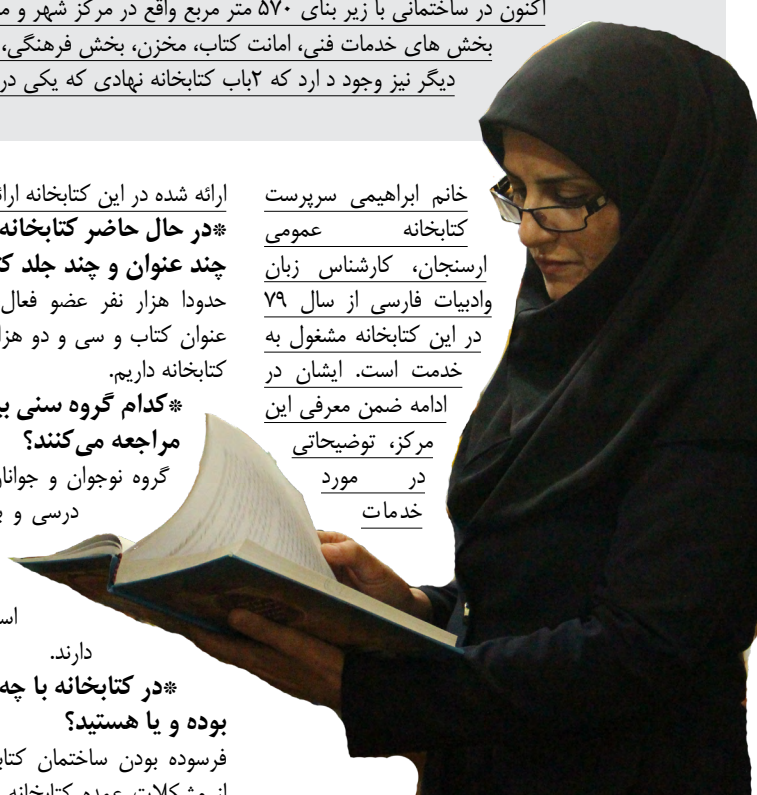 اکنون در ساختمانی با زیر بنای ۵۷۰ متر مربع واقع در مرکز شهر و
بخش های خدمات فنی، امانت کتاب، مخزن، بخش فرهنگی،
دیگر نیز وجود د ارد که ۲باب کتابخانه نهادی که یکی در
خانم ابراهیمی سرپرست
کتابخانه عمومی
ارسنجان، کارشناس زبان
وادبیات فارسی از سال ۷۹
در این کتابخانه مشغول به
خدمت است. ایشان در
ادامه ضمن معرفی این
مرکز، توضیحاتی
در مورد
خدمات
ارائه شده در این کتابخانه
*در حال حاضر کتابخانه
چند عنوان و چند جلد
حدودا هزار نفر عضو فعال
عنوان کتاب و سی و دو
کتابخانه داریم.
*کدام گروه سنی
مراجعه می‌کنند؟
گروه نوجوان و
درسی و
دارند.
*در کتابخانه با چه
بوده و یا هستید؟
فرسوده بودن ساختمان
از مشکلات عمده کتابخانه